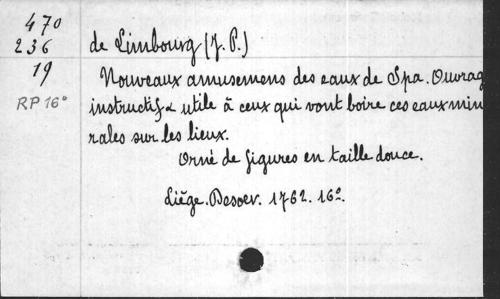 470
236
19
RP 16°
de Limbourg (J. P.)
Nouveaux amusemens des eaux de Spa. Ouvrag
instructif & utile à ceux qui vont boire ces eaux min
rales sur les lieux.
Orné de figures en taille douce.
Liége. Desoer. 1762. 16°.